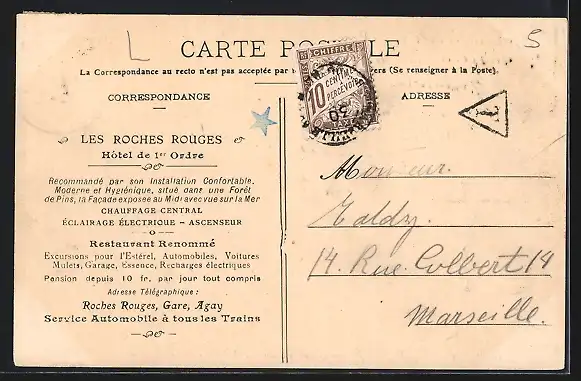 L
5
CARTE POSTALE
La Correspondance au recto n'est pas acceptée par (Se renseigner à la Poste)
CORRESPONDANCE
LES ROCHES ROUGES
Hôtel de 1er Ordre
Recommandé par son Installation Confortable.
Moderne et Hygiénique, situé dans une Forêt
de Pins, la Façade exposée au Midi avec vue sur la Mer
CHAUFFAGE CENTRAL
ÉCLAIRAGE ÉLECTRIQUE - ASCENSEUR
Restaurant Renommé
Excursions pour l'Estérel, Automobiles, Voitures
Mulets, Garage, Essence, Recharges électriques
Pension depuis 10 fr. par jour tout compris
Adresse Télégraphique :
Roches Rouges, Gare, Agay
Service Automobile à tous les Trains
CHIFFRE
10
CENTIMES
A PERCEVOIR
ADRESSE
T
Monsieur.
Taldy.
14. Rue Colbert 14
Marseille.